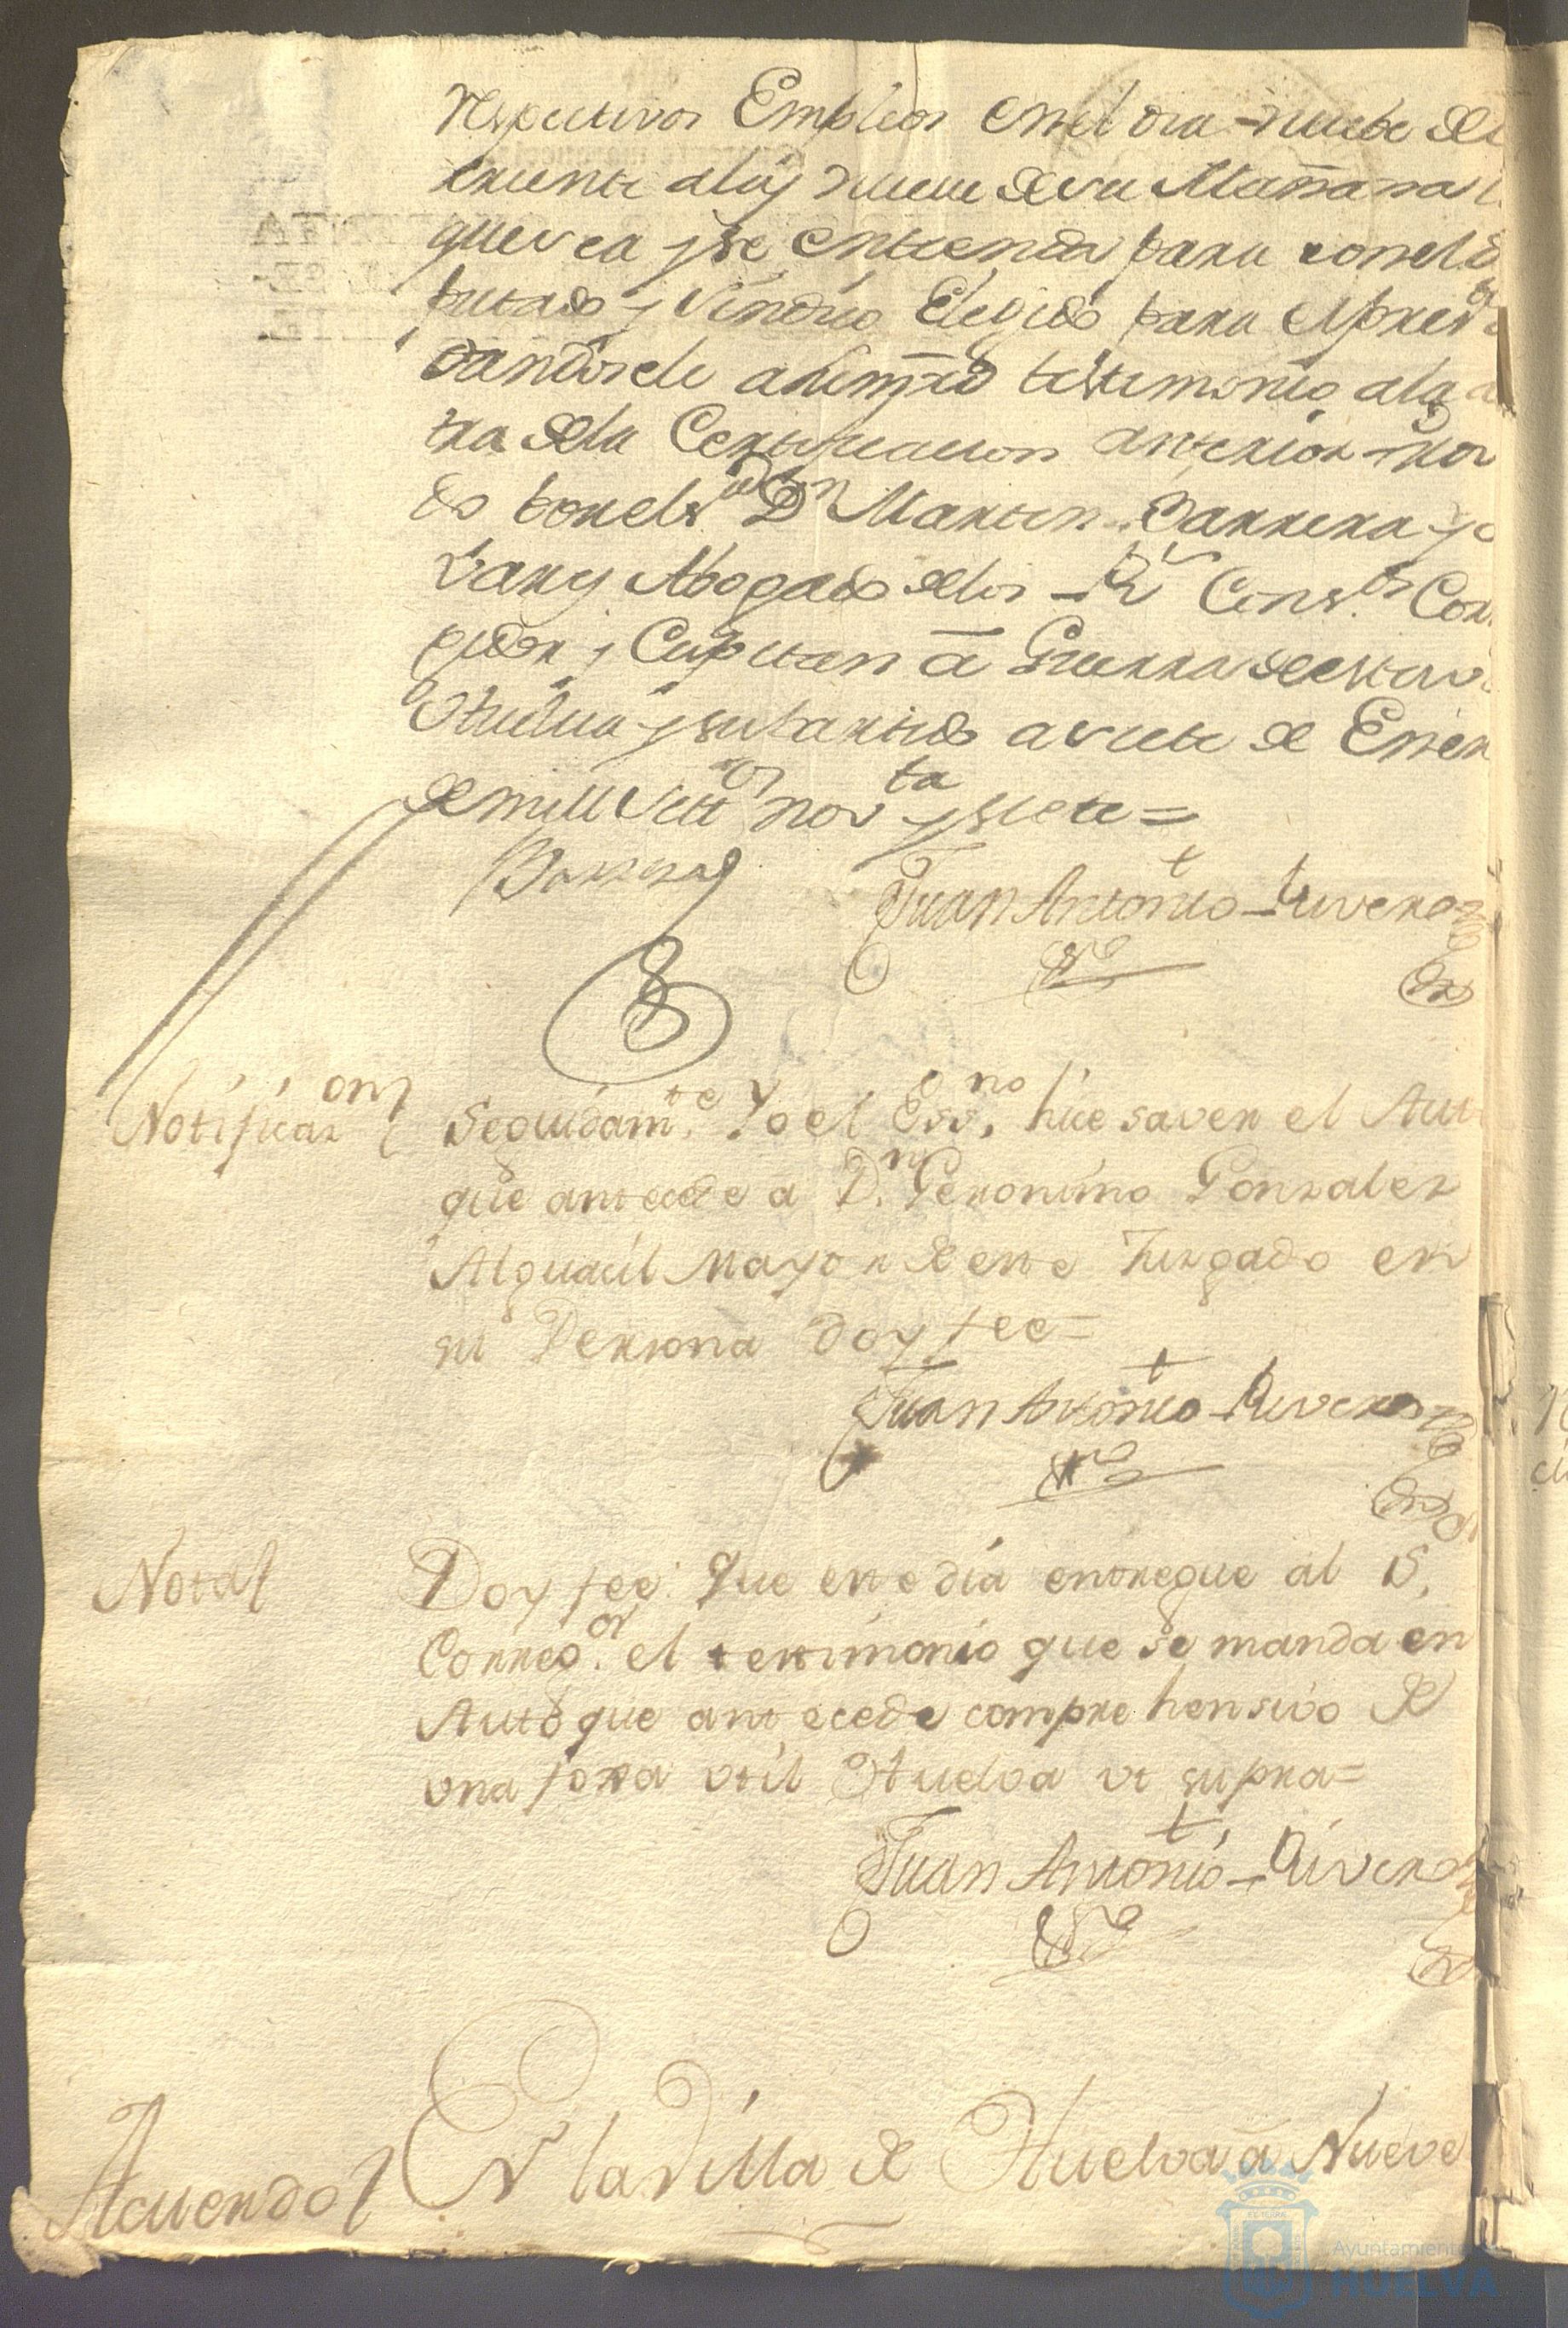 respectivos Empleos en el dia nuebe del
rriente a las nueve de su Mañana
que sea y se entienda para con el Di
putado y Sindico Elegido para el pres
dandosele a dicho testimonio a la
tra de la Certificacion anterior
do por el Sr D.n Martin Barrera y
Abogado de los R.s Cons.os Corr
gidor y Capitan â Guerra de esta v.
Huelva y su partido a siete de Ener
de mill Sett.os nov.ta y siete =
Barrera
Juan Antonio Rivero
Notificaz.on Seguidam.te Yo el Ess.no hice saver el Aut
que antecede a D.n Geronimo Gonzalez
Alguacil Mayor de este Juzgado en
su Persona doy fee =
Juan Antonio Rivero
Nota Doy fee: Que este dia entregue al S.
Correg.or el testimonio que se manda en
Auto que antecede comprehensivo de
una foxa util Huelva ut supra =
Juan Antonio Rivero
Acuerdo EN la Villa de Huelva â Nueve
Ayuntamiento
HUELVA